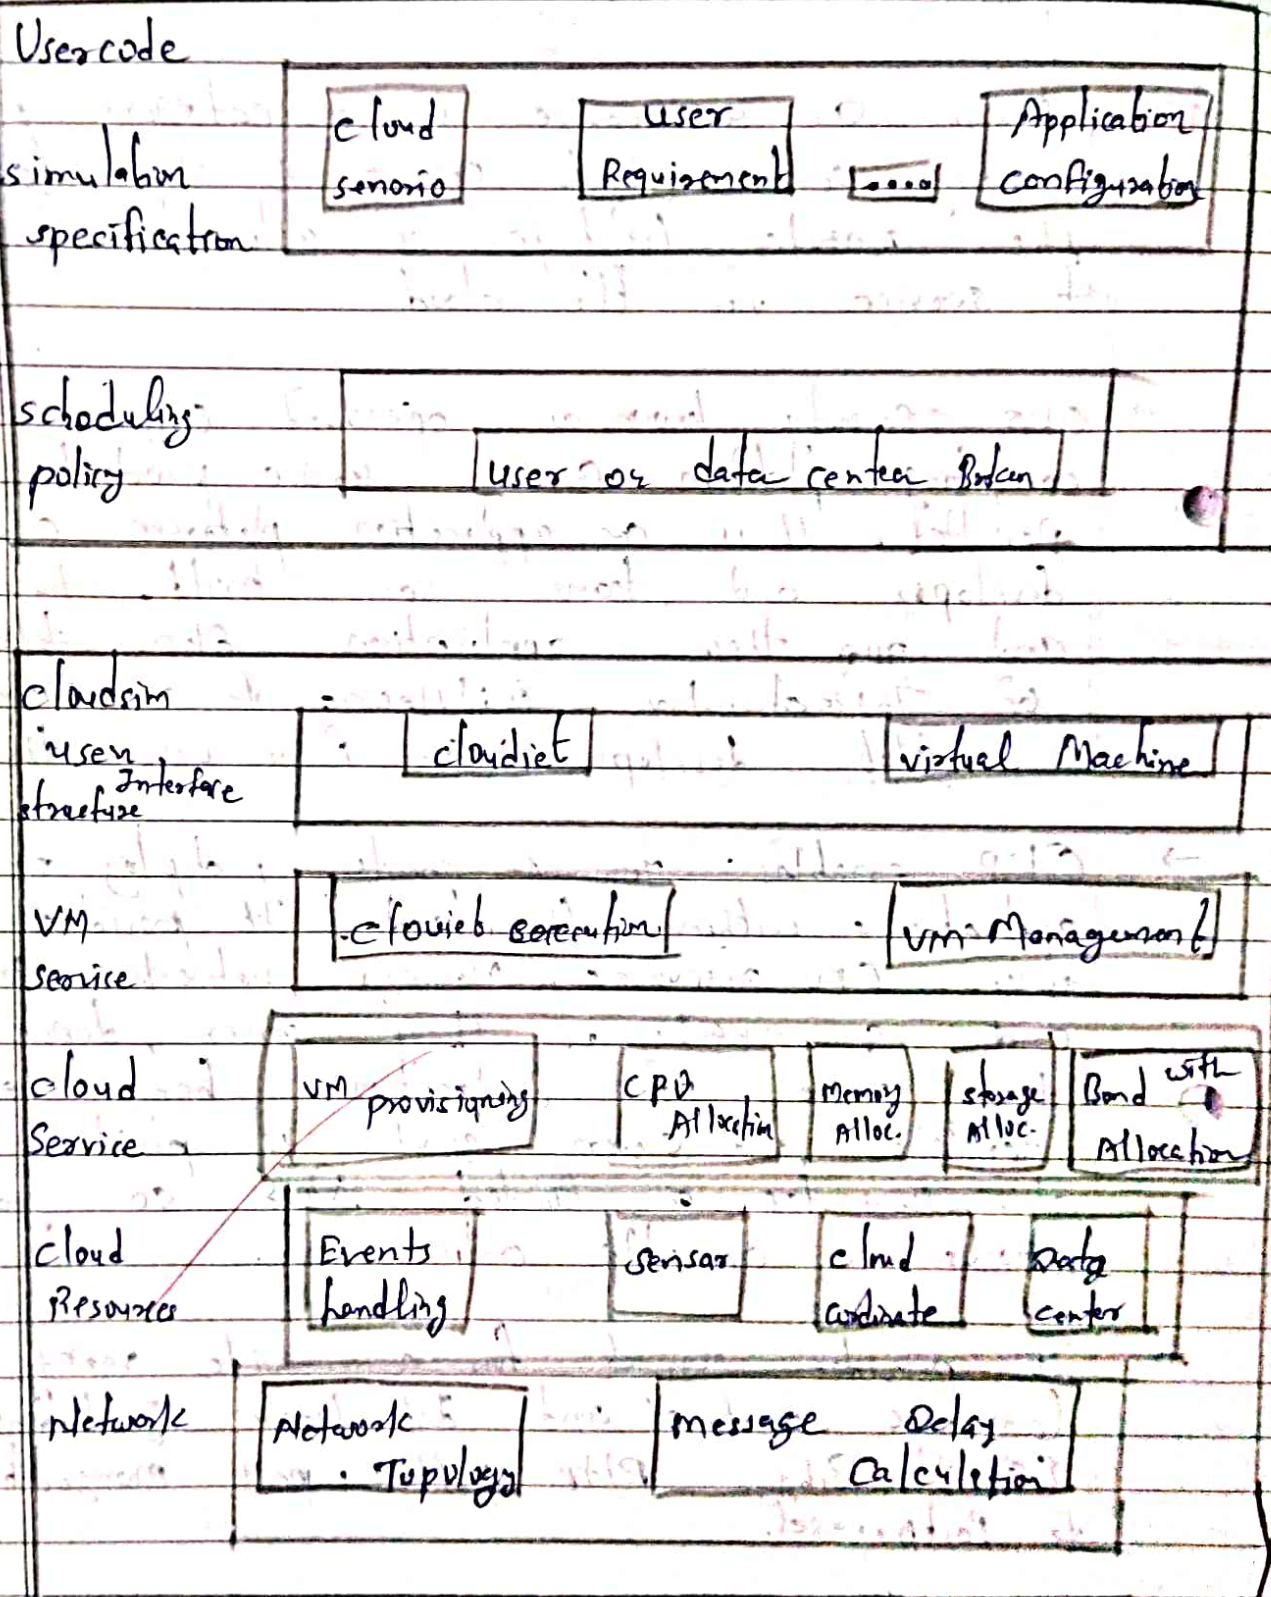 Usercode
cloud
senorio
user
Requirement
....
Application
configuration
simulation
specification
scheduling
policy
user or data center Broker
cloudsim
user
Interface
structure
cloudlet
virtual Machine
VM
service
execution
VM Management
cloud
Service
VM provisigning
CPU
Allocation
Memory
Alloc.
storage
Alloc.
Band with
Allocation
cloud
Resources
Events
handling
sensar
cloud
cordinate
Data
center
Network
Network
Topology
message Delay
Calculation